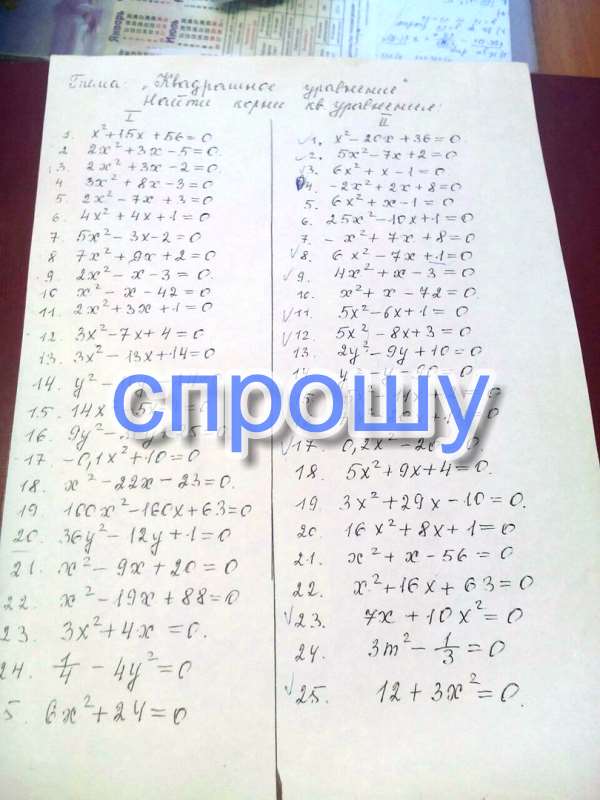 Тема: „Квадратное уравнение"
Найти корни кв. уравнения:
I
1. x²+15x+56=0
2. 2x²+3x-5=0.
3. 2x²+3x-2=0.
4. 3x²+8x-3=0
5. 2x²-7x+3=0
6. 4x²+4x+1=0
7. 5x²-3x-2=0
8. 7x²+9x+2=0
9. 2x²-x-3=0.
10. x²-x-42=0
11. 2x²+3x+1=0
12. 3x²-7x+4=0
13. 3x²-13x+14=0
14. y²-
15. 14x
16. 9y²-
17. -0,1x²+10=0
18. x²-22x-23=0.
19. 100x²-160x+63=0
20. 36y²-12y+1=0
21. x²-9x+20=0
22. x²-19x+88=0
23. 3x²+4x=0.
24. 1/4-4y²=0
5. 6x²+24=0
II
1. x²-20x+36=0.
2. 5x²-7x+2=0
3. 6x²+x-1=0.
4. -2x²+2x+8=0
5. 6x²+x-1=0
6. 25x²-10x+1=0
7. -x²+7x+8=0
8. 6x²-7x+1=0
9. 4x²+x-3=0
10. x²+x-72=0
11. 5x²-6x+1=0
12. 5x²-8x+3=0
13. 2y²-9y+10=0
17. 0,2x²-
18. 5x²+9x+4=0.
19. 3x²+29x-10=0.
20. 16x²+8x+1=0
21. x²+x-56=0
22. x²+16x+63=0
23. 7x+10x²=0
24. 3m²-1/3=0
25. 12+3x²=0.
спрошу